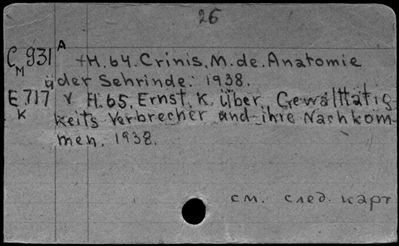 26
C 931 A +H. 64. Crinis, M. de. Anatomie
M
ü der Sehrinde. 1938.
E 717 v H. 65. Ernst, K. Über, Gewalttätig
K
keits Verbrecher und ihre Nachkom-
men. 1938.
см. след. карт